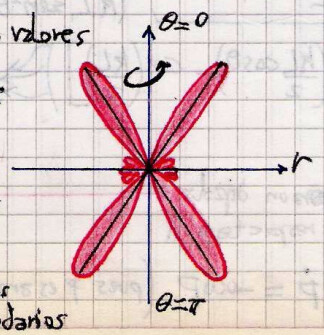 valores
θ=0
r
θ=π
darios